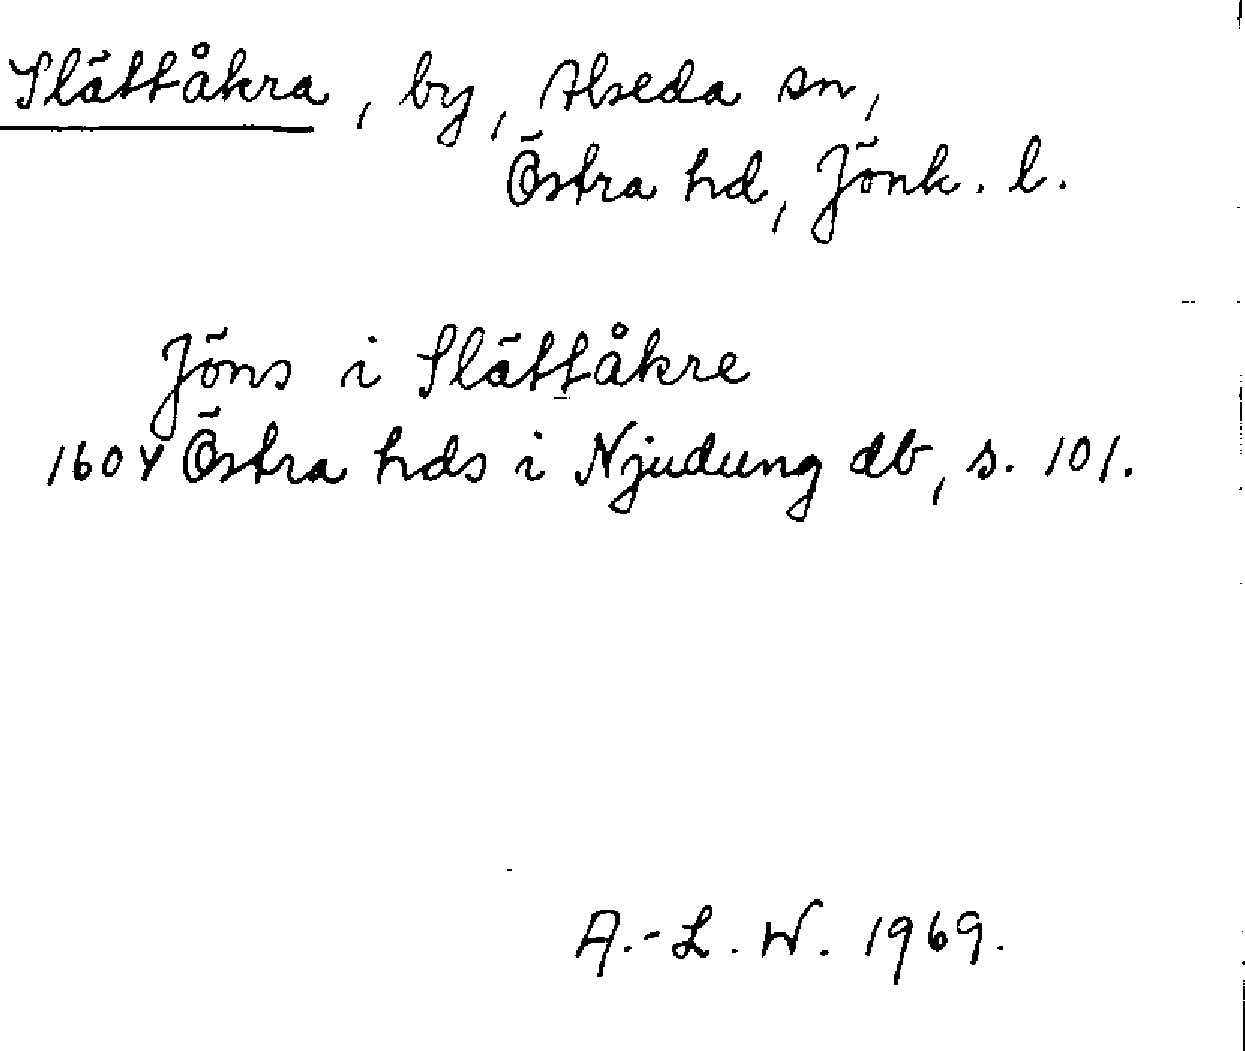 Slättåkra, by, Alseda sn,
Östra hd, Jönk. l.
Jöns i Slättåkre
1604 Östra hds i Njudung db, s. 101.
A.-L. W. 1969.